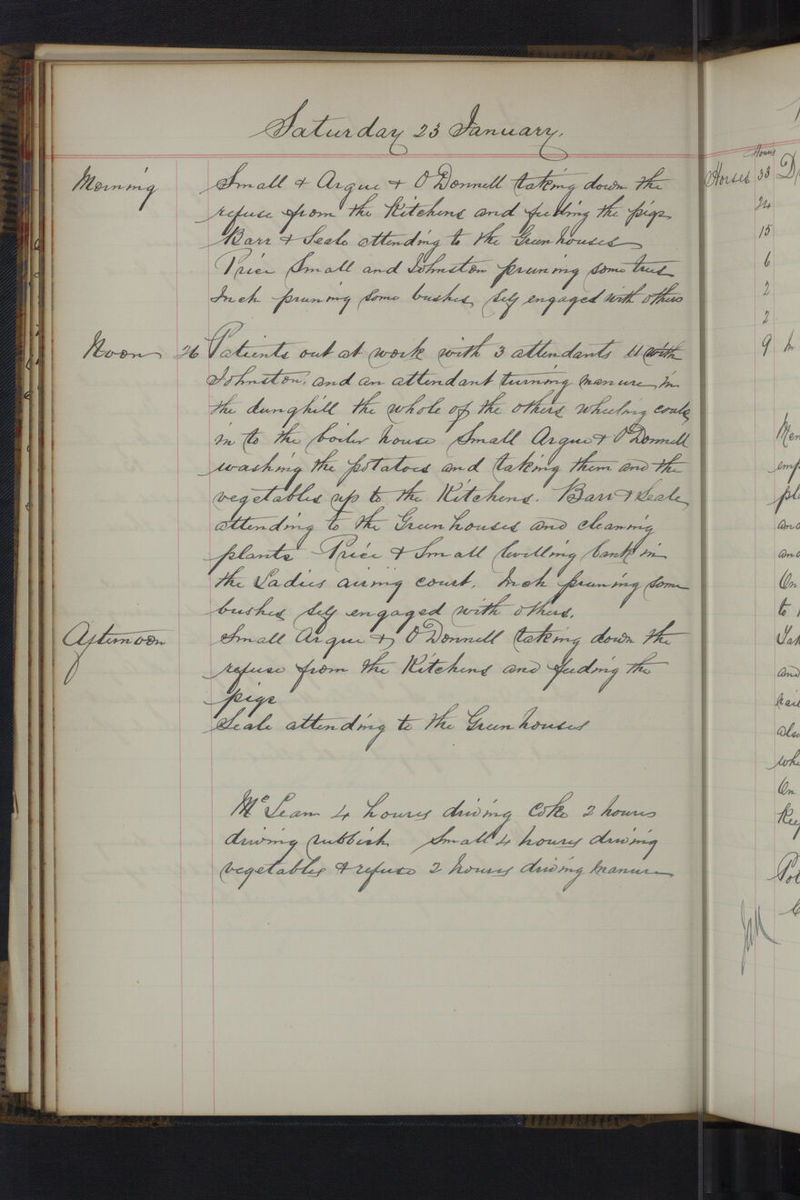 Saturday 23 January.
Morning Small & Argue & O'Donnell taking down the
refuse from the Kitchens and feeding the pigs
Barr & Seale attending to the Green houses
Price Small and Johnston pruning some trees
Inch pruning some bushes, self engaged with others
Noon 26 Patients out at work with 3 attendants 11 with
Johnston, and an attendant turning manure in
the dunghill the whole of the others wheeling coals
in to the boiler house Small Argue & O'Donnell
washing the potatoes and taking them and the
vegetables up to the Kitchens. Barr & Seale
attending to the Green houses and cleaning
plants Price & Small levelling bank in
the Ladies airing court. Inch pruning some
bushes self engaged with others.
Afternoon Small Argue & O'Donnell taking down the
refuse from the Kitchens and feeding the
pigs
Seale attending to the Green houses
McLean 4 hours driving Coke 2 hours
driving rubbish Small 4 hours driving
vegetables & refuse 2 hours driving manure
Hours
Horses 33
15
6
2
2
9
and
and
On
to
and
also
On